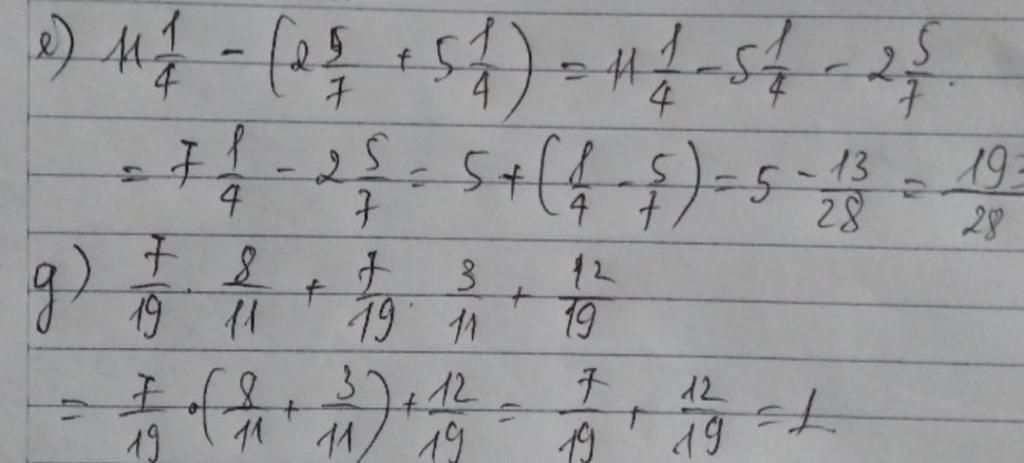 e) 11 1/4 - (2 5/7 + 5 1/4) = 11 1/4 - 5 1/4 - 2 5/7.
= 7 1/4 - 2 5/7 = 5 + (1/4 - 5/7) = 5 - 13/28 = 19/28
g) 7/19 . 8/11 + 7/19 . 3/11 + 12/19
= 7/19 . (8/11 + 3/11) + 12/19 = 7/19 + 12/19 = 1